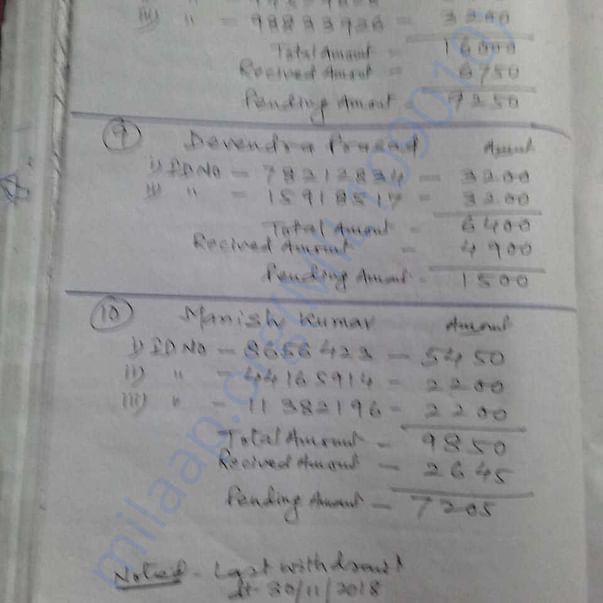 iii) " = 98883926 = 3200
Total Amount = 16000
Recived Amount = 6750
Pending Amount - 9250
9 Devendra Prasad Amount
i) ID NO - 78212834 - 3200
ii) " = 15918517 = 3200
Total Amount = 6400
Recived Amount = 4900
Pending Amount - 1500
10 Manish Kumar Amount
i) ID NO - 8656423 - 5450
ii) " = 44165914 = 2200
iii) " - 11382196 - 2200
Total Amount - 9850
Recived Amount - 2645
Pending Amount - 7205
Noted - Last withdrawl
dt 30/11/2018
milaap.org